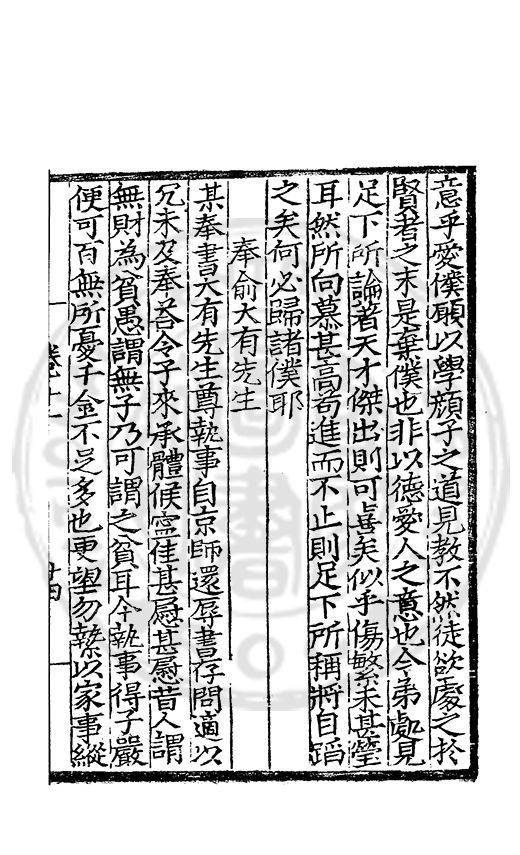 意乎愛僕願以學顏子之道見教不然徒欲處之於
賢者之末是棄僕也非以德愛人之意也令弟處見
足下所論著天才傑出則可喜矣似乎傷繁未甚瑩
耳然所向慕甚高苟進而不止則足下所稱將自蹈
之矣何必歸諸僕耶
奉俞大有先生
某奉書大有先生尊執事自京師還辱書存問適以
冗未及奉荅令子來承體候寧佳甚慰甚慰昔人謂
無財為貧愚謂無子乃可謂之貧耳今執事得子嚴
便可百無所憂千金不足多也更望勿縈以家事縱
卷十一
廿四